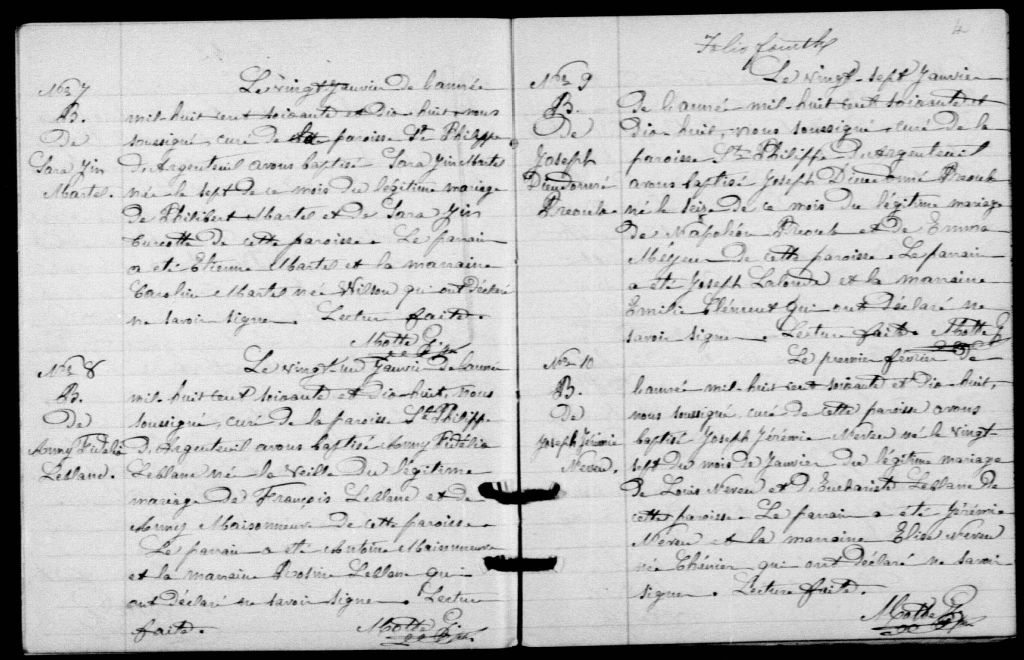 No 7
B.
De
Sara Jin
Martel.
Le vingt Janvier de l'année
mil-huit cent soixante et dix-huit, nous
soussigné, curé de la paroisse St Philippe
d'Argenteuil avons baptisé Sara Jin Martel
née le sept de ce mois du légitime mariage
de Philibert Martel et de Sara Jin
Turcotte de cette paroisse. Le parrain
a été Etienne Martel et la marraine
Caroline Martel née Wilson qui ont déclaré
ne savoir signer. Lecture faite.
Motte
No 8
B.
De
Anny Fidélia
Leblanc.
Le vingt-un Janvier de l'année
mil-huit cent soixante et dix-huit, nous
soussigné, curé de la paroisse St Philippe
d'Argenteuil avons baptisé Anny Fidélia
Leblanc née la veille du légitime
mariage de François Leblanc et de
Anny Maisonneuve de cette paroisse.
Le parrain a été Antoine Maisonneuve
et la marraine Rosine Leblanc qui
ont déclaré ne savoir signer. Lecture
faite.
Motte
4
Folio fourth
No 9
B.
De
Joseph
Dieudonné
Le vingt-sept Janvier
de l'année mil-huit cent soixante et
dix-huit, nous soussigné, curé de la
paroisse St Philippe d'Argenteuil
avons baptisé Joseph Dieudonné
né le seize de ce mois du légitime mariage
de Napoléon et de Emma
de cette paroisse. Le parrain
a été Joseph Lalonde et la marraine
Emilie Clément qui ont déclaré ne
savoir signer. Lecture faite. Motte
No 10
B.
De
Joseph Jérémie
Neveu.
Le premier février de
l'année mil-huit cent soixante et dix-huit,
nous soussigné, curé de cette paroisse avons
baptisé Joseph Jérémie Neveu né le vingt
sept du mois de Janvier du légitime mariage
de Louis Neveu et d'Euchariste Leblanc de
cette paroisse. Le parrain a été Jérémie
Néveu et la marraine Elise Neveu
née Chénier qui ont déclaré ne savoir
signer. Lecture faite.
Motte